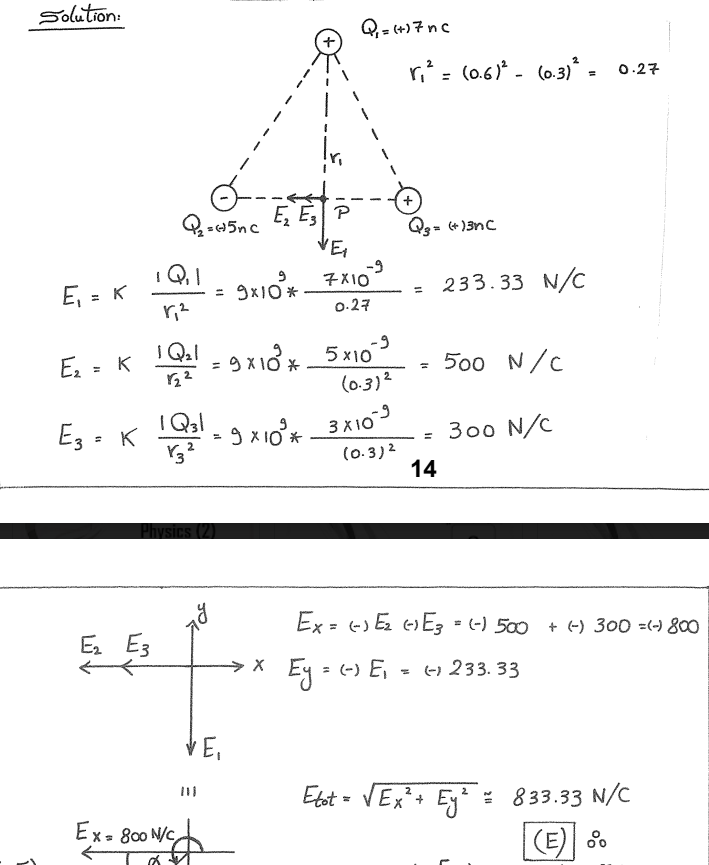 Solution:
Q₁ = (+) 7 n C
r₁² = (0.6)² - (0.3)² = 0.27
+
r₁
-
+
E₂ E₃ P
Q₂ = (-) 5 n C
Q₃ = (+) 3 n C
E₁
E₁ = K |Q₁| / r₁² = 9×10⁹ * 7×10⁻⁹ / 0.27 = 233.33 N/C
E₂ = K |Q₂| / r₂² = 9×10⁹ * 5×10⁻⁹ / (0.3)² = 500 N/C
E₃ = K |Q₃| / r₃² = 9×10⁹ * 3×10⁻⁹ / (0.3)² = 300 N/C
14
Physics (2)
y
E₂ E₃
x
E₁
Ex = (-) E₂ (-) E₃ = (-) 500 + (-) 300 = (-) 800
Ey = (-) E₁ = (-) 233.33
Etot = √Ex² + Ey² ≅ 833.33 N/C
Ex = 800 N/C
(E)
α